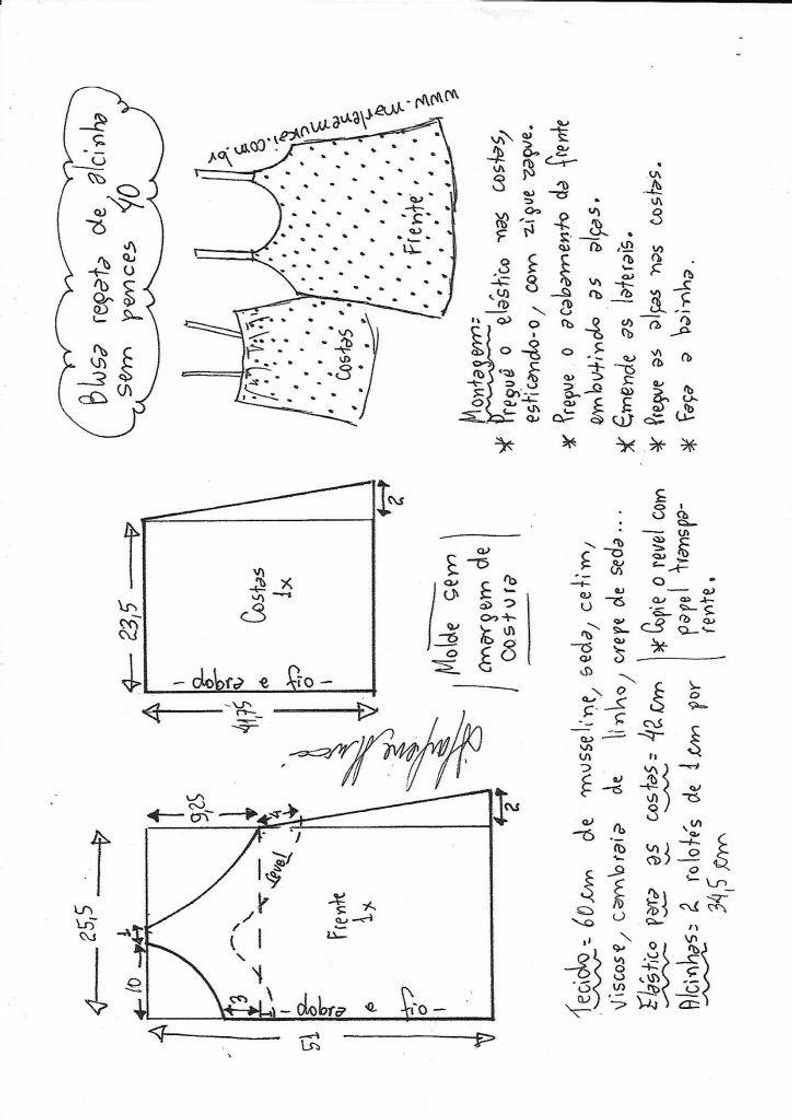 Blusa regata de alcinha
sem pences 40
www.marlenemukai.com.br
Costas
Frente
25,5
10
1
9,25
4
3
revel
Frente
1x
- dobra e fio -
51
2
23,5
Costas
1x
- dobra e fio -
41,75
2
Molde sem
margem de
costura
Montagem:
* Pregue o elástico nas costas,
esticando-o, com zigue zague.
* Pregue o acabamento da frente
embutindo as alças.
* Emende as laterais.
* Pregue as alças nas costas.
* Faça a bainha.
Tecido = 60cm de musseline, seda, cetim,
viscose, cambraia de linho, crepe de seda...
Elástico para as costas = 42cm
Alcinhas = 2 rolotés de 1cm por
34,5 cm
* Copie o revel com
papel transpa-
rente.